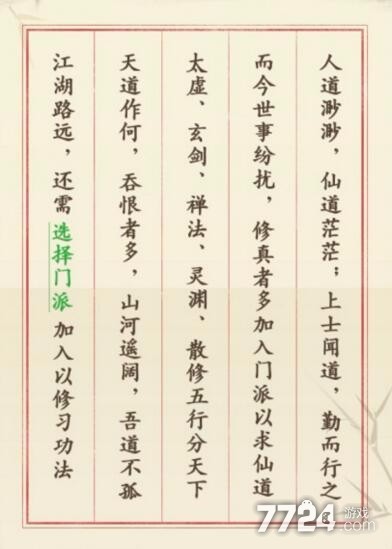 人道渺渺，仙道茫茫；上士闻道，勤而行之
而今世事纷扰，修真者多加入门派以求仙道
太虚、玄剑、禅法、灵渊、散修五行分天下
天道作何，吞恨者多，山河遥阔，吾道不孤
江湖路远，还需选择门派加入以修习功法
7724游戏
.com